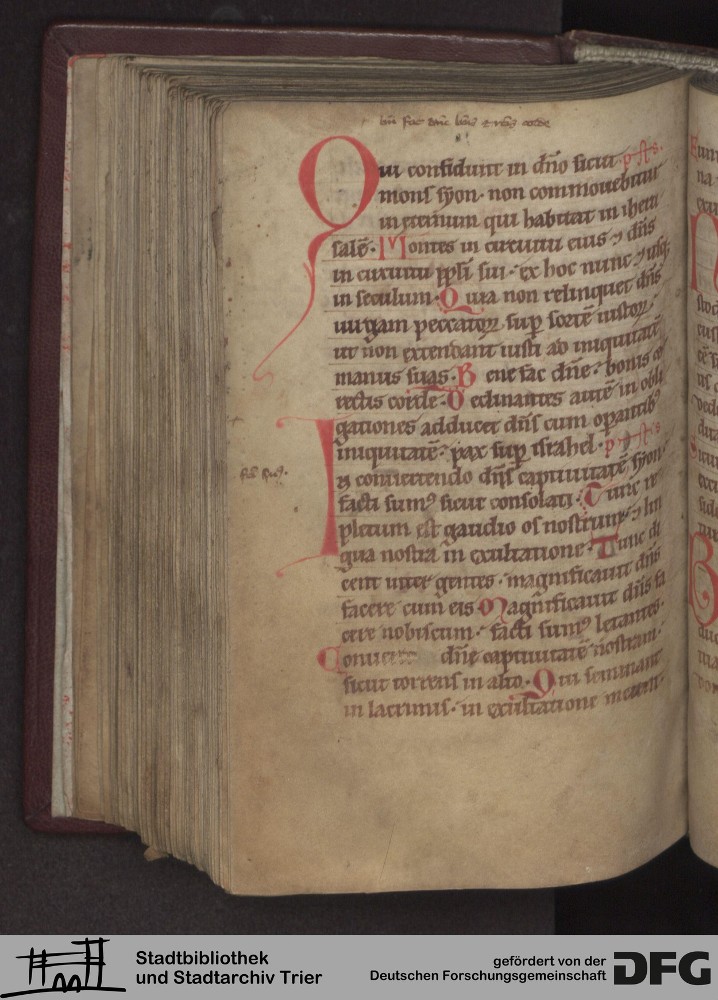 Qui confidunt in dn̄o sicut p̄ s̄ s.
mons syon· non commouebitur
in eternum qui habitat in iheru
salē· Montes in circuitu eius ⁊ dn̄s
in circuitu pp̄li sui· ex hoc nunc ⁊ usq;
in seculum· Quia non relinquet dn̄s
uirgam peccatoꝝ sup̄ sortē iustoꝝ·
ut non extendant iusti ad iniquitatē
manus suas· Bene fac dn̄e· bonis et
rectis corde· Declinantes autē in obli
gationes adducet dn̄s cum operantibꝰ
iniquitatē· pax sup̄ israhel·
In conuertendo dn̄s captiuitatē syon·
facti sumꝰ sicut consolati· Tunc re
pletum est gaudio os nostrum· ⁊ lin
gua nostra in exultatione· Tunc di
cent inter gentes· magnificauit dn̄s
facere cum eis· Magnificauit dn̄s fa
cere nobiscum· facti sumꝰ letantes·
Conuerte dn̄e captiuitatē nostram·
sicut torrens in alto· Qui seminant
in lacrimis· in exultatione metent·
Stadtbibliothek
und Stadtarchiv Trier
gefördert von der
Deutschen Forschungsgemeinschaft
DFG